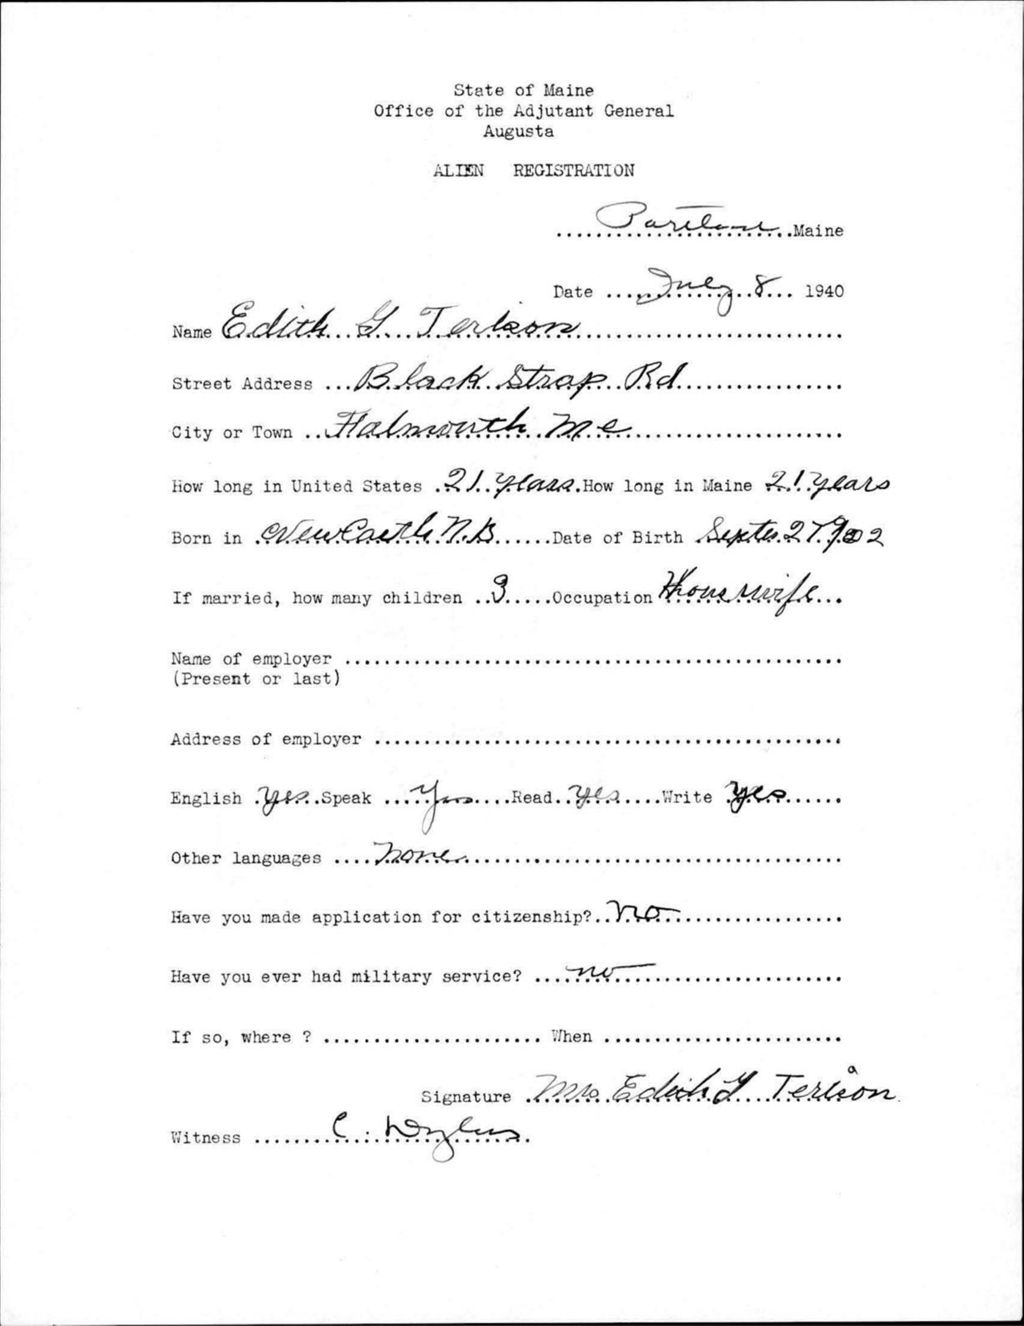 State of Maine
Office of the Adjutant General
Augusta
ALIEN REGISTRATION
Portland Maine
Date July 8 1940
Name Edith G Terlson
Street Address Black Strap Rd
City or Town Falmouth Me
How long in United States 21 years How long in Maine 21 years
Born in NewCastle N.B Date of Birth Septe 27 1902
If married, how many children 3 Occupation Housewife
Name of employer
(Present or last)
Address of employer
English yes Speak Yes Read yes Write yes
Other languages none
Have you made application for citizenship? no
Have you ever had military service? no
If so, where ? When
Signature Mrs Edith G Terlson
Witness C.